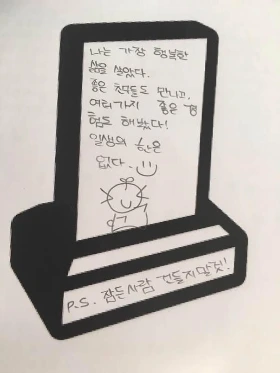 나는 가장 행복한
삶을 살았다.
좋은 친구들도 만나고,
여러가지 좋은 경
험도 해봤다!
일생의 한은
없다.
P.S. 잠든사람 건들지말것!